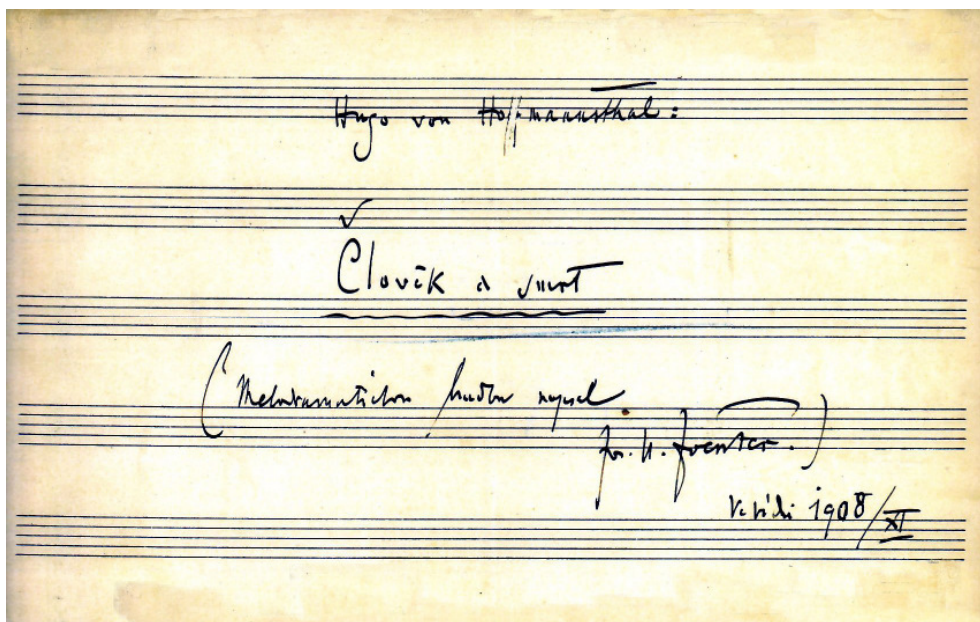 Hugo von Hoffmannsthal:
Člověk a smrt
(Melodramatickou hudbu napsal
Jos. B. Foerster.)
Ve Vídni 1908/XI